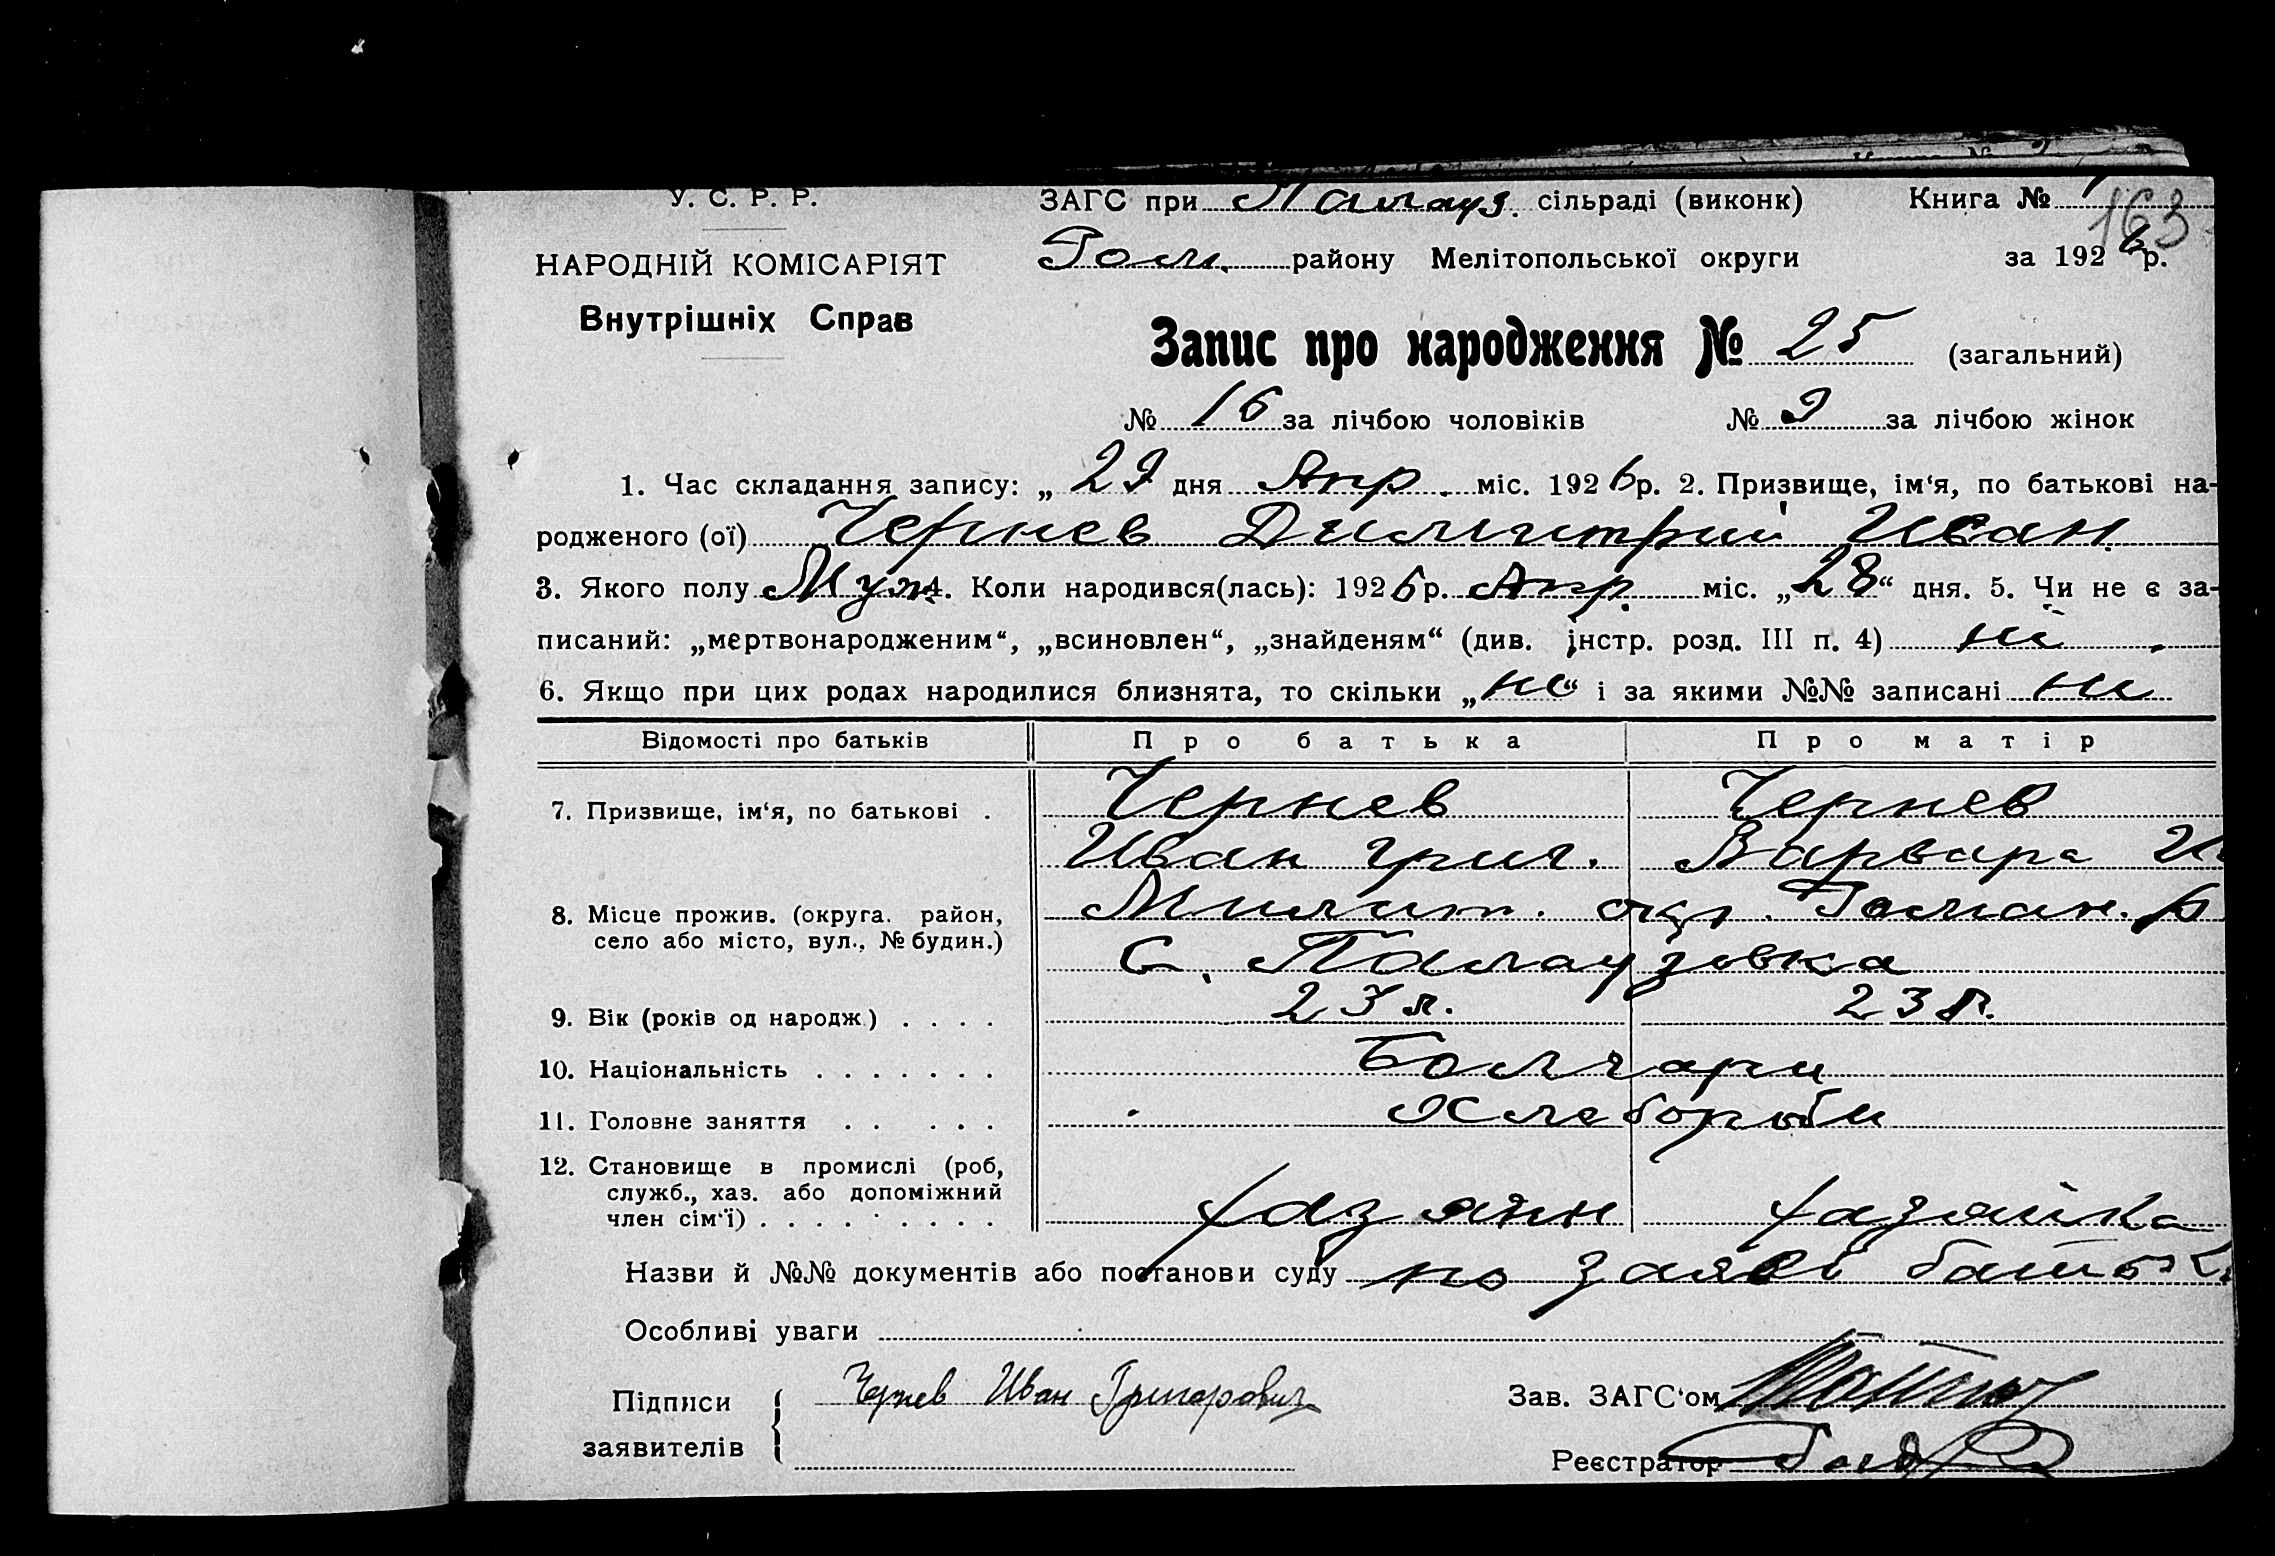 У. С. Р. Р.
НАРОДНІЙ КОМІСАРІЯТ
Внутрішніх Справ
ЗАГС при Палауз. сільраді (виконк) Книга № 1
163
Ром. району Мелітопольської округи за 1926 р.
Запис про народження № 25 (загальний)
№ 16 за лічбою чоловіків № 9 за лічбою жінок
1. Час складання запису: „ 29 дня Апр. міс. 1926 р. 2. Призвище, ім‘я, по батькові на-
родженого (ої) Чернев Димитрий Иван.
3. Якого полу Муж. 4. Коли народився(лась): 1926 р. Апр. міс. „28“ дня. 5. Чи не є за-
писаний: „мертвонародженим“, „всиновлен“, „знайденям“ (див. інстр. розд. III п. 4) ні
6. Якщо при цих родах народилися близнята, то скільки „ні“ і за якими №№ записані ні
Відомості про батьків Про батька Про матір
7. Призвище, ім‘я, по батькові . Чернев Чернев
Иван Григ. Варвара
8. Місце прожив. (округа, район, Милит. окр. Роман. р
село або місто, вул., № будин.) С. Палаузовка
9. Вік (років од народж.) . . . . 23 л. 23 л.
10. Національність . . . . . . . Болгари
11. Головне заняття . . . . . Хлебороби
12. Становище в промислі (роб,
служб., хаз. або допоміжний
член сім‘ї) . . . . . . . . . хазяин хазяйка
Назви й №№ документів або постанови суду по заяві батьк
Особливі уваги
Підписи Чернев Иван Григорович Зав. ЗАГС‘ом
заявителів Реєстратор